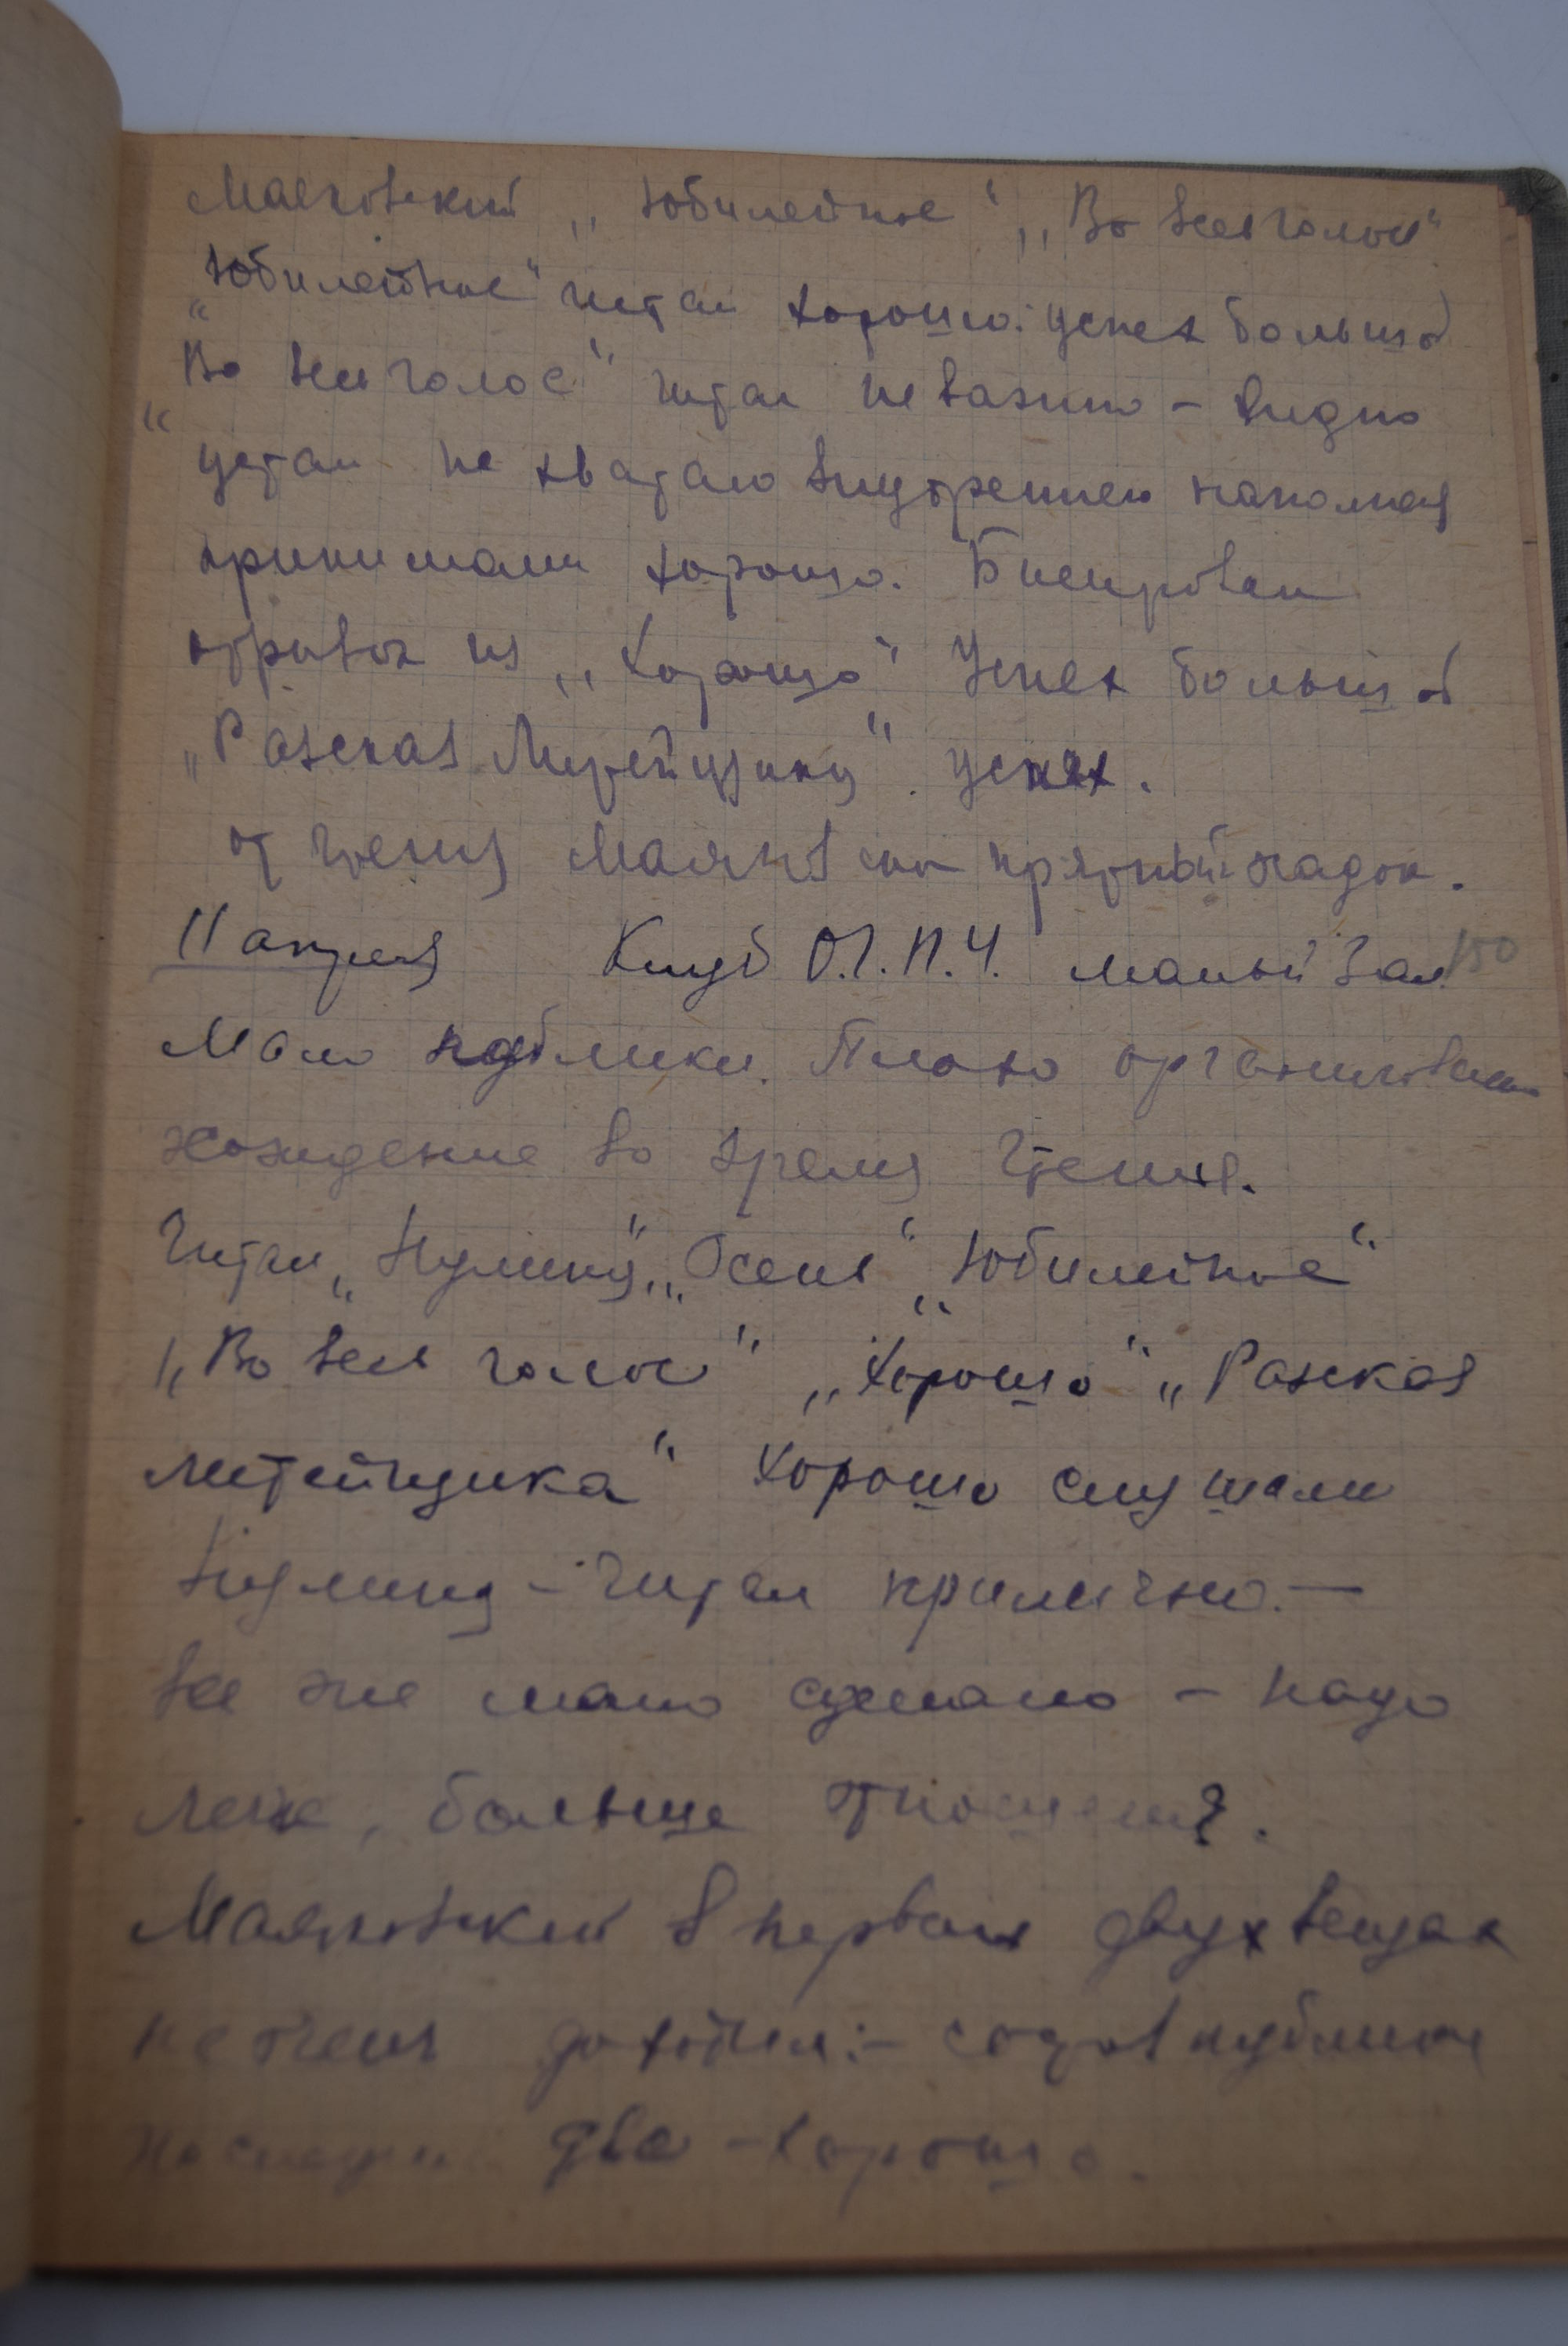 Маяковский „Юбилейное“, „Во весь голос“
„Юбилейное“ читал хорошо: успех большой
„Во весь голос“ читал неважно – видно
устал не хватало внутреннего наполнения
принимали хорошо. Бисировал
отрывок из „Хорошо“ Успех большой
„Рассказ Литейщика“. успех.
От чтения Маяковского приятный осадок.
11 апреля Клуб О.Г.П.У. малый зал 150
Мало публики. Плохо организован
хождение во время чтения.
Читал „Нулина“, „Осень“ „Юбилейное“
„Во весь голос“ „Хорошо“ „Рассказ
литейщика“ хорошо слушали
Нулина – читал прилично. –
все же мало сделано – надо
легче, больше отношения.
Маяковский в первых двух вещах
не очень доходил: – состав публики
последние две – хорошо.